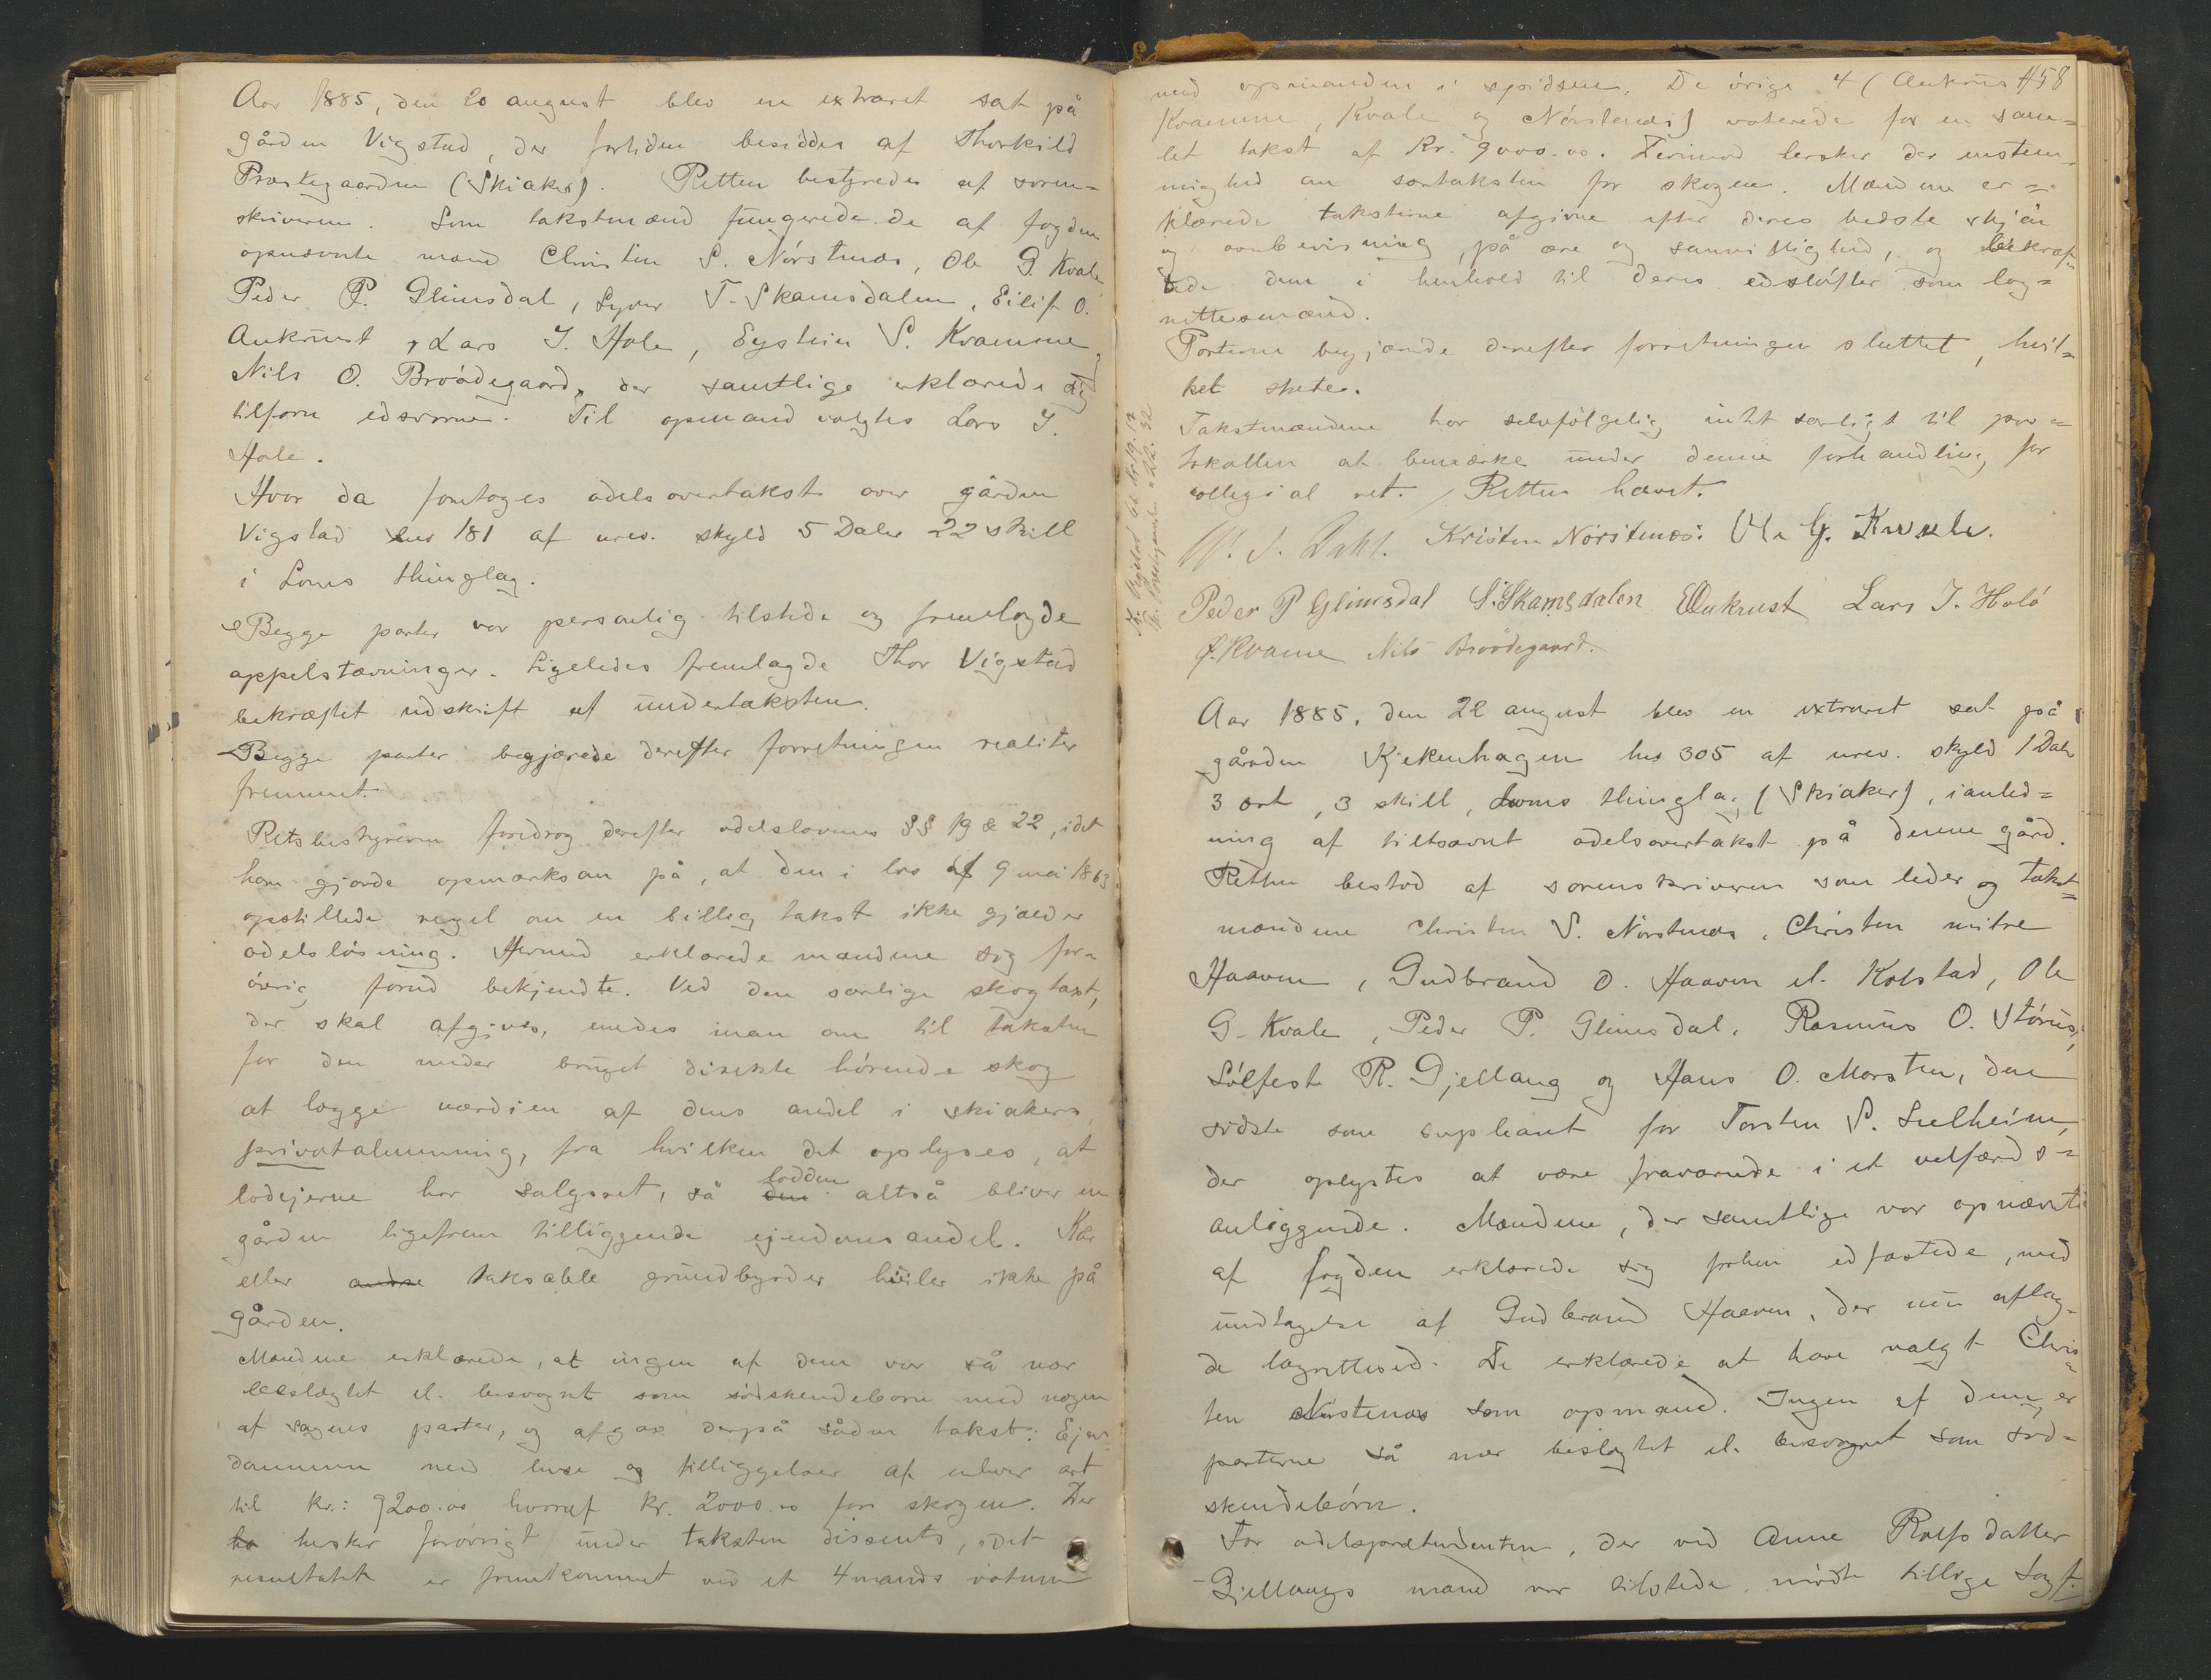 Aar 1885, den 20 august blev en extraret sat på
gården Vigstad, der fortiden besiddes af Thorkild
Præstegaarden (Skiaker). Retten bestyredes af soren=
skriveren. Som takstmænd fungerede de af fogden
opnævnte mænd Christen S. Nörstenæs, Ole G. Kvale
Peder P. Glimsdal, Syver T. Skamsdalen, Eilif O.
Aukrust, Lars I. Hole, Eystein S. Kvamme,
Nils O. Broödegaard, der samtlige erklærede sig
tilforn edsvorne. Til opmand valgtes Lars I.
Hole.
Hvor da foretoges odelsovertakst over gården
Vigstad lnr 181 af urev. skyld 5 Daler 22 skill
i Loms thinglag.
Begge parter var personlig tilstede og fremlagde
appelstævninger. Ligeledes fremlagde Thor Vigstad
bekræftet udskrift af undertaksten.
Begge parter begjærede derefter forretningen realiter
fremmet.
Retsbestyreren foredrog derefter odelslovens §§ 19 & 22, idet
han gjorde opmærksom på, at den i lov af 9 mai 1863
opstillede regel om en billig takst ikke gjælder
odelslösning. Hermed erklærede mændene sig for=
övrig forud bekjendte. Ved den særlige skogtaxt,
der skal afgives, enedes man om til taksten
for den under bruget direkte hörende skog
at lægge værdien af dens andel i skiakers
privatalmenning, fra hvilken det oplyses, at
lodejerne har salgsret, så den lodden altså bliver en
gården ligefrem tilliggende ejendomsandel. Kår
eller andre taksable grundbyrder hviler ikke på
gården.
Mændene erklærede, at ingen af dem var så nær
beslægtet el. besvogret som södskendebarn med nogen
af sagens parter, og afgav derpå sådan takst: Ejen=
dommen med huse og tilliggelser af enhver art
til kr.: 9200.00 hvoraf kr. 2000.00 for skogen. Der
ho hersker forövrigt under taksten dissents, idet
resultatet er fremkommet ved et 4 mands votum
med opmanden i spidsen. De örige 4 (Aukrust
458
Kvamme, Kvale og Nörstenæs) voterede for en sam=
let takst af Kr. 9000.00. Derimod hersker der enstem=
mighed om særtaksten for skogen. Mændene er=
klærede taksterne afgivne efter deres bedste skjön
og overbevisning, på ære og samvittighed, og bekræf=
tede dem i henhold til deres edslöfter som lag=
rettesmænd.
Parterne begjærede derefter forretningen sluttet, hvil=
ket skete.
Takstmændene har selvfölgelig intet særligt til pro=
tokollen at bemærke under denne forhandling for
collegial ret. Retten hævet.
Kristen Nörstenæs. Ole G. Kvale.
Peder P Glimsdal S. Skamsdalen EAukrust Lars I. Holö
Ø. Kvame Nils Broödegaard.
Aar 1885, den 22 august blev en extraret sat på
gården Kjekenhagen lnr 305 af urev. skyld 1 Daler
3 ort, 3 skill, Loms thinglag (Skiaker), i anled=
ning af tiltsævnt odelsovertakst på denne gård.
Retten bestod af sorenskriveren som leder og takst=
mændene Christen S. Nörstenæs, Christen mitre
Haaven, Gudbrand O. Haaven el. Kolstad, Ole
G. Kvale, Peder P. Glimsdal, Rasmus O. Störus,
Sölfest R. Gjellaug og Hans O. Marsten, den
sidste som supleant for Torsten S. Sulheim,
der oplystes at være fraværende i et velfærds=
anliggende. Mændene, der samtlige var opnævnte
af fogden erklærede sig forhen edfæstede, med
undtagelse af Gudbrand Haaven, der nu aflag=
de lagrettesed. De erklærede at have valgt Chris=
ten Nörstenæs som opmand. Ingen af dem er
parterne så nær beslægtet el. besvogret som söd=
skendebörn.
For odelsprætendenten, der ved Anne Rolfsdatter
Gjellaugs mand var tilstede, mödte tillige Sagf.